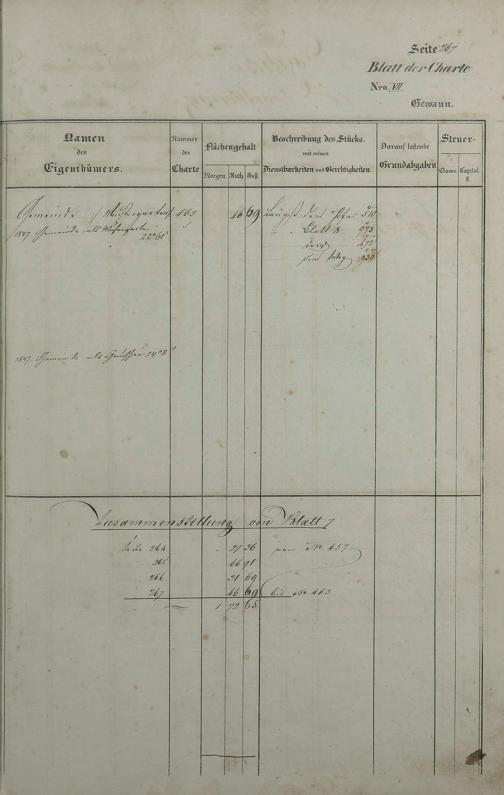 Seite 267
Blatt der Charte
Nro. VII
Gewann.
Namen des Eigenthümers.
Nummer der Charte
Flächengehalt
Morgen Ruth. Fuß.
Beschreibung des Stücks.
mit seinen
Dienstbarkeiten und Gerechtigkeiten.
Darauf lastende Grundabgaben
Steuer-
Classe. Capital. fl.
Gemeinde 463 46 69 Längst dem 510
1847 Gemeinde 22°61' Blatt 8 473
472
dem 930
1847. Gemeinde 24°8'
Zusammenstellung von Blatt 7
Seite 264 - 37 36 von No 457
265 66 91
266 21 69
267 46 69 bis No 463
1 72 65